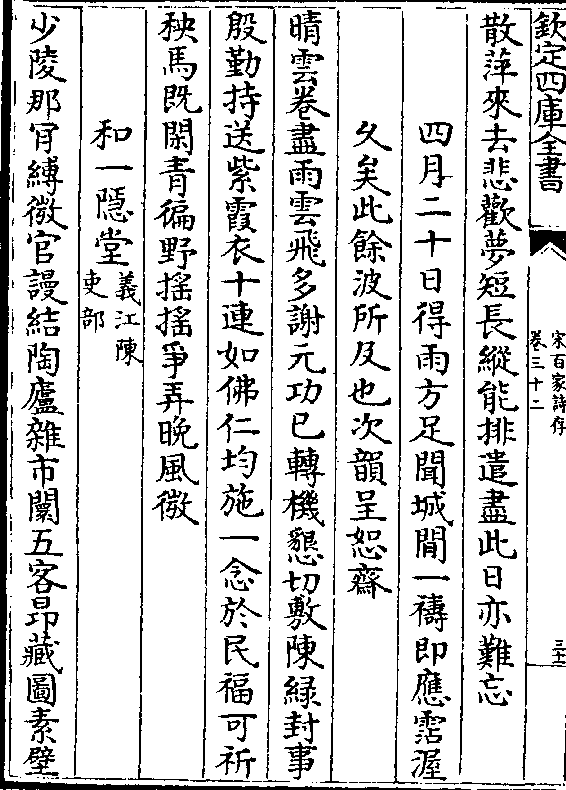 欽定四庫全書
宋百家詩存
卷三十二
三十二
散萍來去悲歡夢短長縱能排遣盡此日亦難忘
四月二十日得雨方足聞城間一禱即應霑渥
久矣此餘波所及也次韻呈恕齋
晴雲卷盡雨雲飛多謝元功已轉機懇切敷陳緑封事
殷勤持送紫霞衣十連如佛仁均施一念於民福可祈
秧馬既閑青徧野摇摇爭弄晚風微
和一隱堂
義江陳
吏部
少陵那肎縛微官謾結陶廬雜市闤五客昂藏圖素壁